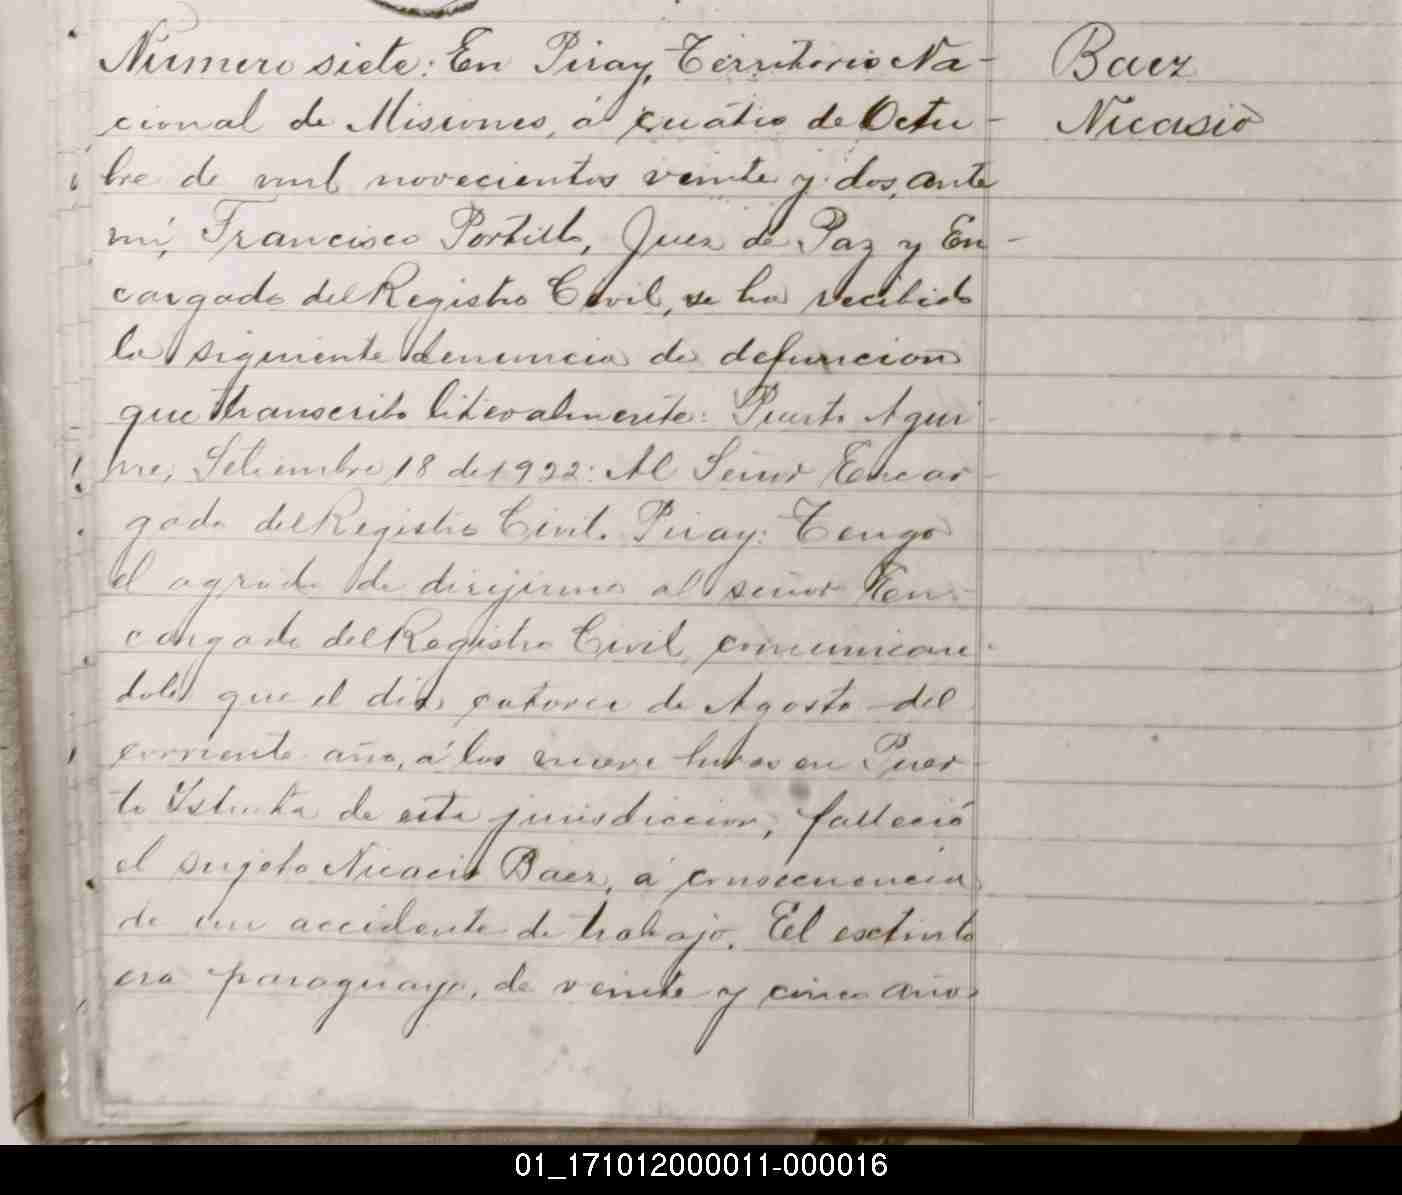 Número siete: En Piray, Territorio Na-
cional de Misiones, á cuatro de Octu-
bre de mil novecientos veinte y dos, ante
mí, Francisco Portillo, Juez de Paz y En-
cargado del Registro Civil, se ha recibido
la siguiente denuncia de defuncion
que transcribo literalmente: Puerto Aguir-
rre, Setiembre 18 de 1922: Al Señor Encar-
gado del Registro Civil. Piray: Tengo
el agrado de dirijirme al señor En-
cargado del Registro Civil, comunican-
dole que el dia catorce de Agosto del
corriente año, á las nueve horas en Puer-
to de esta jurisdiccion, falleció
el sujeto Nicacio Baez, á consecuencia
de un accidente de trabajo. El extinto
era paraguayo, de veinte y cinco años
Baez
Nicasio
01_171012000011-000016